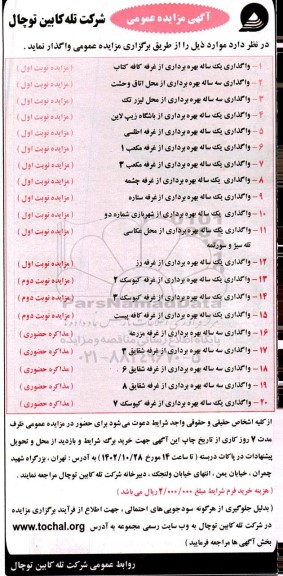 آگهی مزایده عمومی
شرکت تله کابین توچال
در نظر دارد موارد ذیل را از طریق برگزاری مزایده عمومی واگذار نماید .
۱ - واگذاری یک ساله بهره برداری از غرفه کافه کتاب ( مزایده نوبت اول )
۲ - واگذاری سه ساله بهره برداری از محل اتاق وحشت ( مزایده نوبت اول )
۳ - واگذاری سه ساله بهره برداری از محل لیزر تگ ( مزایده نوبت اول )
۴ - واگذاری یک ساله بهره برداری از باشگاه زیپ لاین ( مزایده نوبت اول )
۵ - واگذاری یک ساله بهره برداری از غرفه اطلسی ( مزایده نوبت اول )
۶ - واگذاری یک ساله بهره برداری از غرفه مکعب ۱ ( مزایده نوبت اول )
۷ - واگذاری یک ساله بهره برداری از غرفه مکعب ۳ ( مزایده نوبت اول )
۸ - واگذاری یک ساله بهره برداری از غرفه چشمه ( مزایده نوبت اول )
۹ - واگذاری یک ساله بهره برداری از غرفه ستاره ( مزایده نوبت اول )
۱۰ - واگذاری یک ساله بهره برداری از شهربازی شماره دو ( مزایده نوبت اول )
۱۱ - واگذاری یک ساله بهره برداری از محل عکاسی ( مزایده نوبت اول )
تله سیژ و سورتمه
۱۲ - واگذاری یک ساله بهره برداری از غرفه رز ( مزایده نوبت اول )
۱۳ - واگذاری یک ساله بهره برداری از غرفه کیوسک ۲ ( مزایده نوبت دوم )
۱۴ - واگذاری یک ساله بهره برداری از غرفه کیوسک ۳ ( مزایده نوبت دوم )
۱۵ - واگذاری یک ساله بهره برداری از غرفه کافه پیست ( مزایده نوبت دوم )
۱۶ - واگذاری سه ساله بهره برداری از غرفه مزرعه ( مذاکره حضوری )
۱۷ - واگذاری سه ساله بهره برداری از غرفه شقایق ۱ ( مذاکره حضوری )
۱۸ - واگذاری سه ساله بهره برداری از غرفه شقایق ۶ ( مذاکره حضوری )
۱۹ - واگذاری سه ساله بهره برداری از غرفه شقایق ۸ ( مذاکره حضوری )
۲۰ - واگذاری یک ساله بهره برداری از غرفه کیوسک ۷ ( مذاکره حضوری )
از کلیه اشخاص حقیقی و حقوقی واجد شرایط دعوت می شود برای حضور در مزایده عمومی ظرف
مدت ۷ روز کاری از تاریخ چاپ این آگهی جهت خرید برگ شرایط و بازدید از محل و تحویل
پیشنهادات در پاکات دربسته ( تا ساعت ۱۴ مورخ ۱۴۰۲/۱۰/۲۸ ) به آدرس : تهران ، بزرگراه شهید
چمران ، خیابان یمن ، انتهای خیابان ولنجک ، دبیرخانه شرکت تله کابین توچال مراجعه نمایند .
( هزینه خرید فرم شرایط مبلغ ۲/۰۰۰/۰۰۰ ریال می باشد )
( بدلیل جلوگیری از هرگونه سودجویی های احتمالی ، جهت اطلاع از فرآیند برگزاری مزایده
در شرکت تله کابین توچال به وب سایت رسمی مجموعه به آدرس www.tochal.org
بخش آگهی ها مراجعه فرمایید )
روابط عمومی شرکت تله کابین توچال